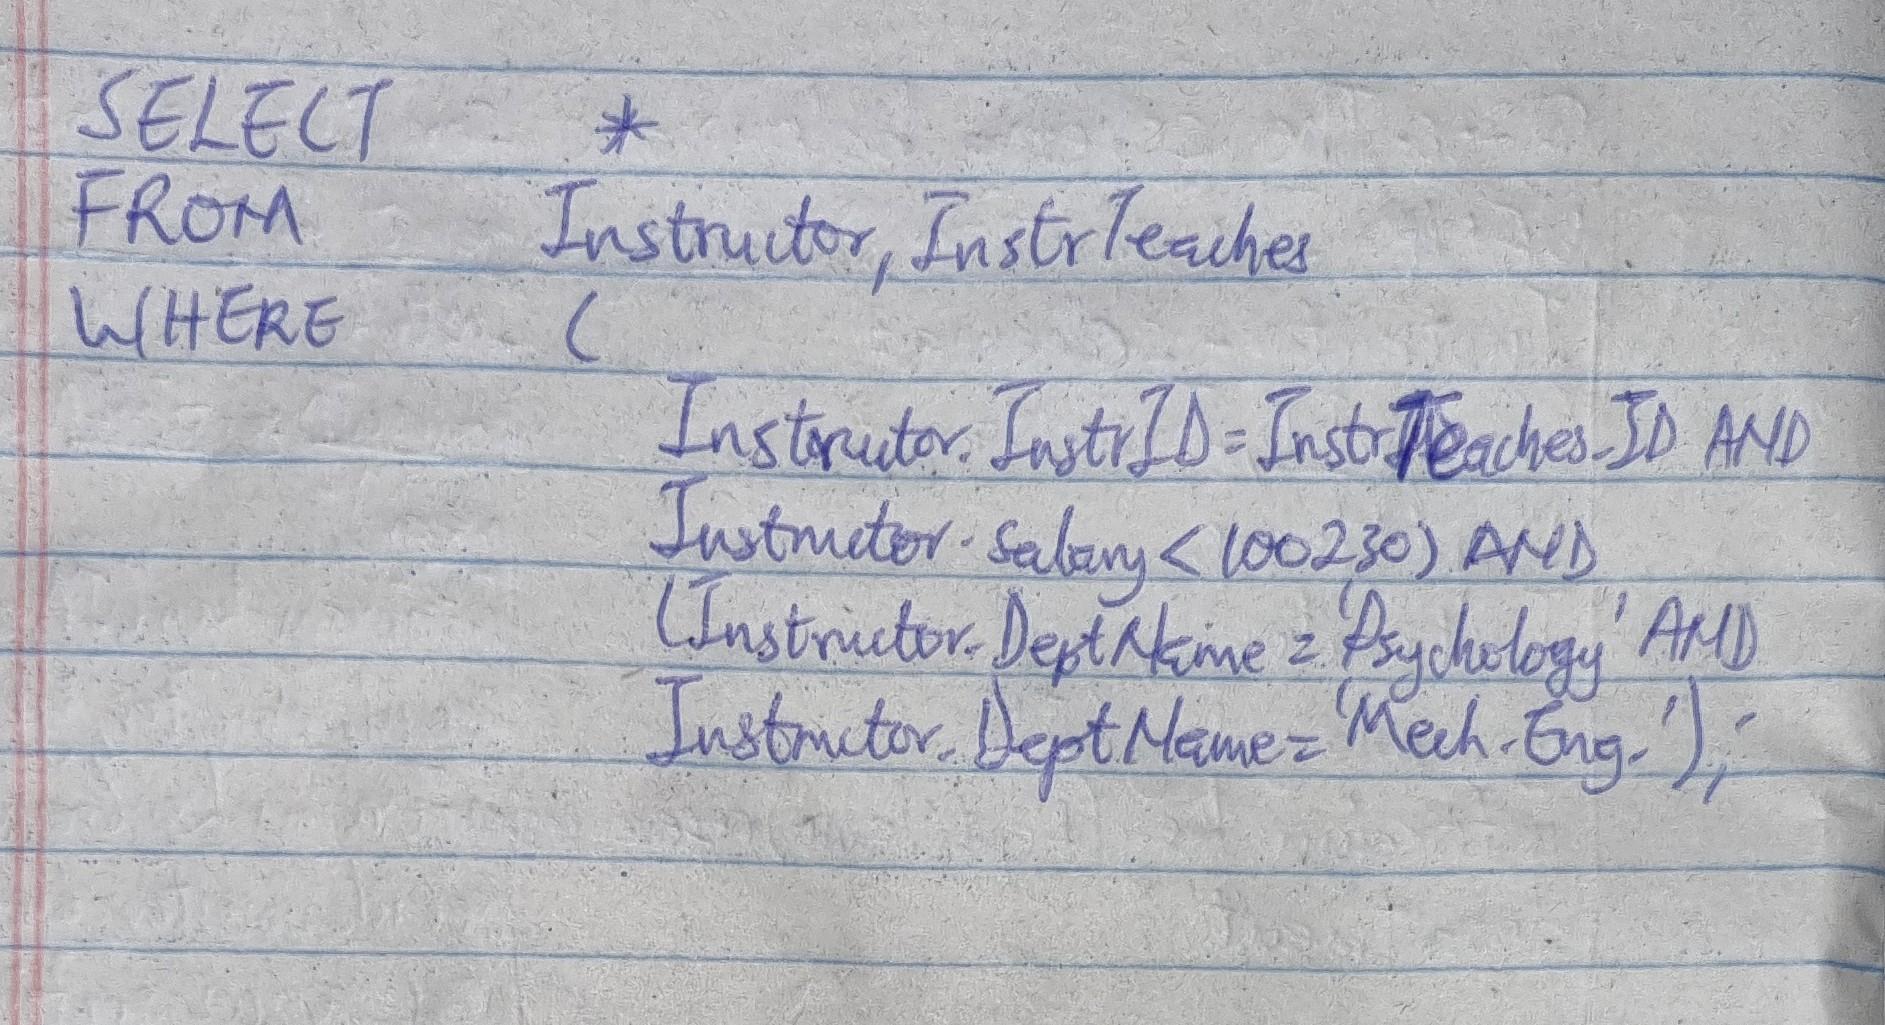 SELECT *
FROM Instructor, InstrTeaches
WHERE (
Instructor.InstrID = InstrTeaches.ID AND
Instructor.salary < 100230) AND
(Instructor.DeptName = 'Psychology' AND
Instructor.DeptName = 'Mech. Eng.');